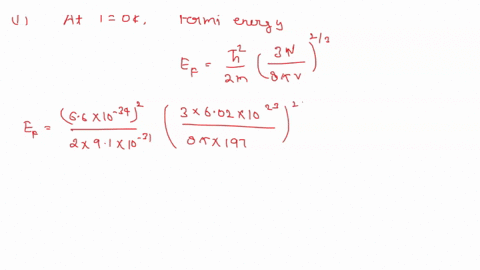 V) At T=0K, Fermi energy
E_F = ħ²/2m (3N/8πV)^2/3
E_F = (6.6×10^-34)²/2×9.1×10^-31 (3×6.02×10^23/8π×197)^2